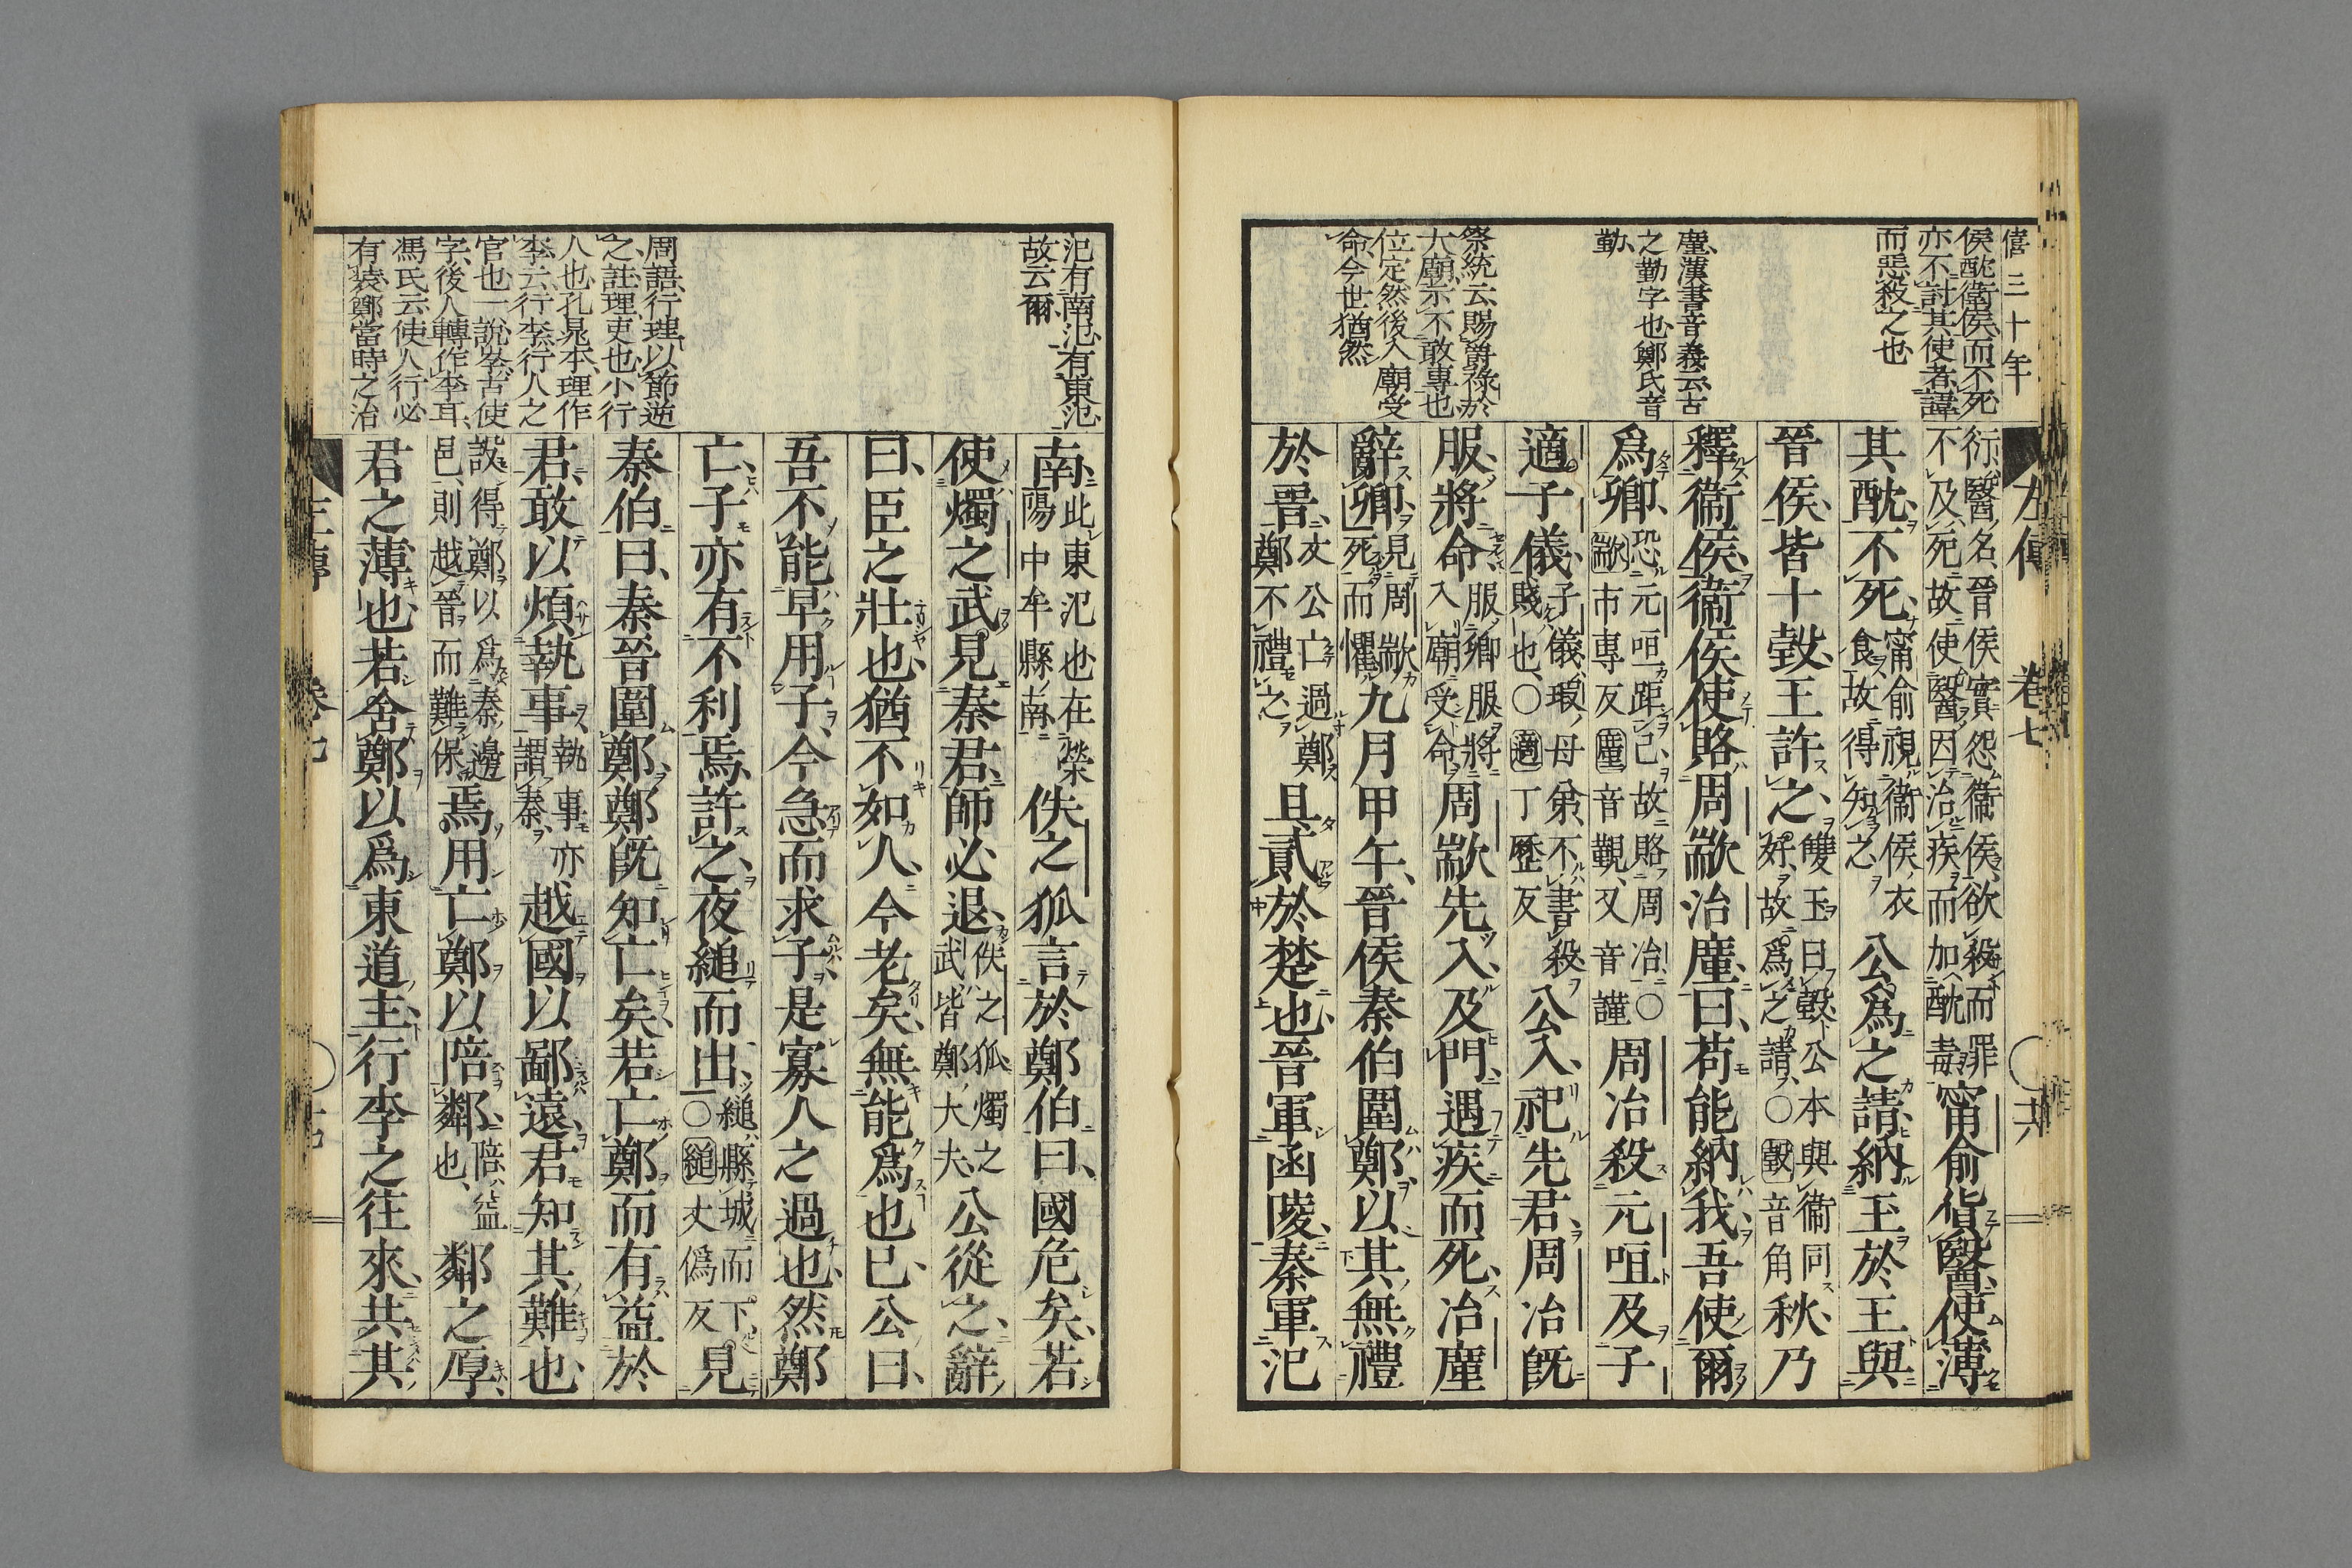 僖三十年
侯酖衛侯而不死
亦不討其使者諱
而惡殺之也
㕓漢書音義云古
之勤字也鄭氏音
勤
祭統云賜爵祿於
大廟示不敢專也
位定然後入廟受
命今世猶然
左傳 卷七
衍醫名晉侯實怨衛侯欲殺而罪
不及死故使醫因治疾而加酖毒
甯俞貨醫使薄
其酖不死
甯俞視衛侯衣
食故得知之
公爲之請納玉於王與
晉侯皆十瑴王許之
雙玉曰瑴公本與衛同
好故爲之請○瑴音角
秋乃
釋衛侯衛侯使賂周歂冶廑曰苟能納我吾使爾
爲卿
恐元咺距己故賂周冶○
歂市專反廑音覲又音謹
周冶殺元咺及子
適子儀
子儀瑕母弟不書殺
賤也○適丁歷反
公入祀先君周冶既
服將命
服卿服將
入廟受命
周歂先入及門遇疾而死冶廑
辭卿
見周歂
死而懼
九月甲午晉侯秦伯圍鄭以其無禮
於晉
文公亡過鄭
鄭不禮之
且貳於楚也晉軍函陵秦軍氾
氾有南氾有東氾
故云爾
周語行理以節逆
之註理吏也小行
人也孔晁本理作
李云行李行人之
官也一說李古使
字後人轉作李耳
馮氏云使人行必
有裝鄭當時之治
南
此東氾也在滎
陽中牟縣南
佚之狐言於鄭伯曰國危矣若
使燭之武見秦君師必退
佚之狐燭之
武皆鄭大夫
公從之辭
曰臣之壯也猶不如人今老矣無能爲也已公曰
吾不能早用子今急而求子是寡人之過也然鄭
亡子亦有不利焉許之夜縋而出
縋縣城而下
○縋丈僞反
見
秦伯曰秦晉圍鄭鄭既知亡矣若亡鄭而有益於
君敢以煩執事
執事亦
謂秦
越國以鄙遠君知其難也
設得鄭以爲秦邊
邑則越晉而難保
焉用亡鄭以陪鄰
陪益
也
鄰之厚
君之薄也若舍鄭以爲東道主行李之往來共其